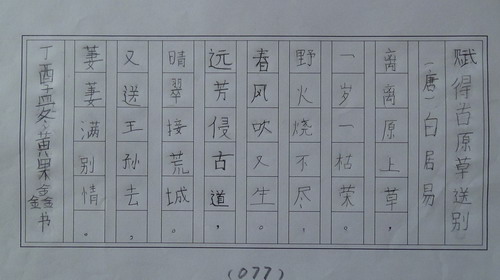 赋得古原草送别
（唐）白居易
离离原上草，
一岁一枯荣。
野火烧不尽，
春风吹又生。
远芳侵古道，
晴翠接荒城。
又送王孙去，
萋萋满别情。
丁酉孟冬黄果鑫书
(077)